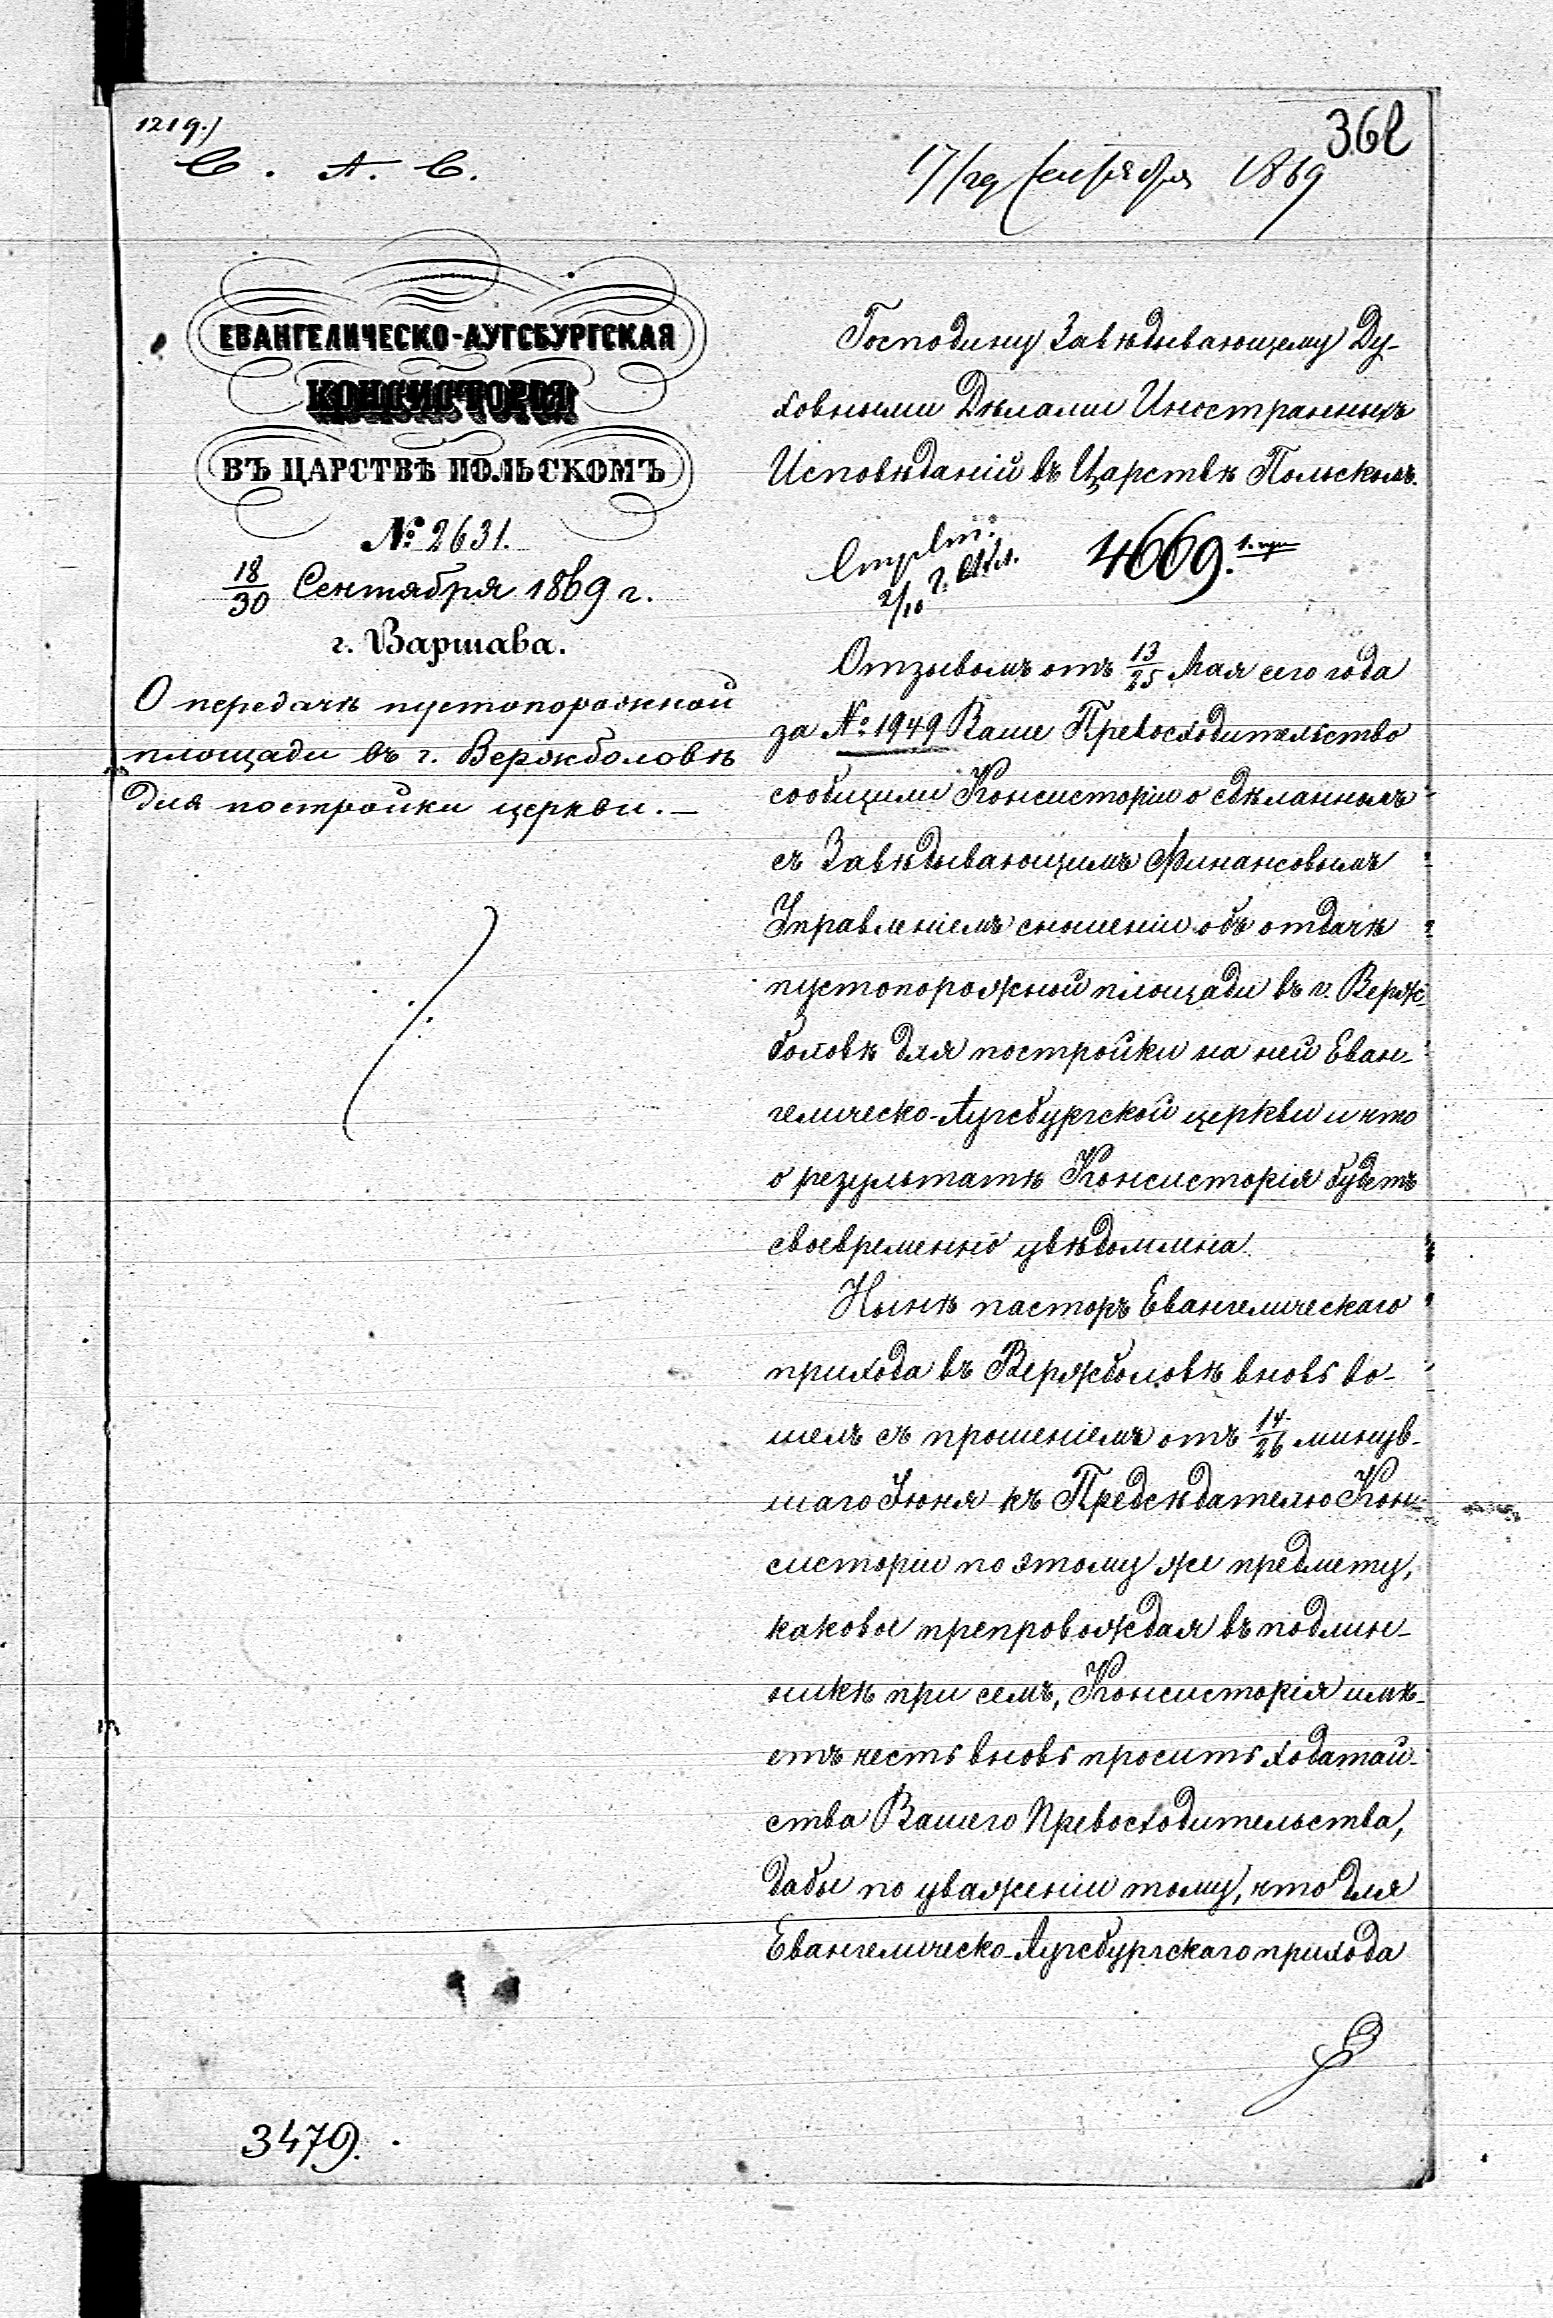 1219.)
С. А. С.
ЕВАНГЕЛИЧЕСКО-АУГСБУРГСКАЯ
КОНСИСТОРІЯ
ВЪ ЦАРСТВѢ ПОЛЬСКОМЪ
№ 2631.
18/30 Сентября 1869 г.
г. Варшава.
О передачѣ пустопорожной
площади въ г. Вержболовѣ
для постройки церкви. —
3479.
362
17/29 сентября 1869
Господину Завѣдывающему Ду-
ховными Дѣлами Иностранныхъ
Исповѣданій въ Царствѣ Польскомъ.
4669.
2/10
Отзывомъ отъ 13/25 Мая сего года
за № 1949 Ваше Превосходительство
сообщили Консисторіи о сдѣланномъ
съ Завѣдывающимъ Финансовымъ
Управленіемъ сношеніи объ отдачѣ
пустопорожной площади въ г. Верж-
боловѣ для постройки на ней Еван-
гелическо-Аугсбургской церкви и что
о результатѣ Консисторія будетъ
своевременно увѣдомлена
Нынѣ пасторъ Евангелическаго
прихода въ Вержболовѣ вновь во-
шелъ съ прошеніемъ отъ 14/26 минув-
шаго Іюня къ Предсѣдателю Кон-
систоріи по этому же предмету,
каковое препровождая въ подлин-
никѣ при семъ, Консисторія имѣ-
етъ честь вновь просить ходатай-
ства Вашего Превосходительства,
дабы по уваженіи тому, что для
Евангелическо-Аугсбургскаго прихода